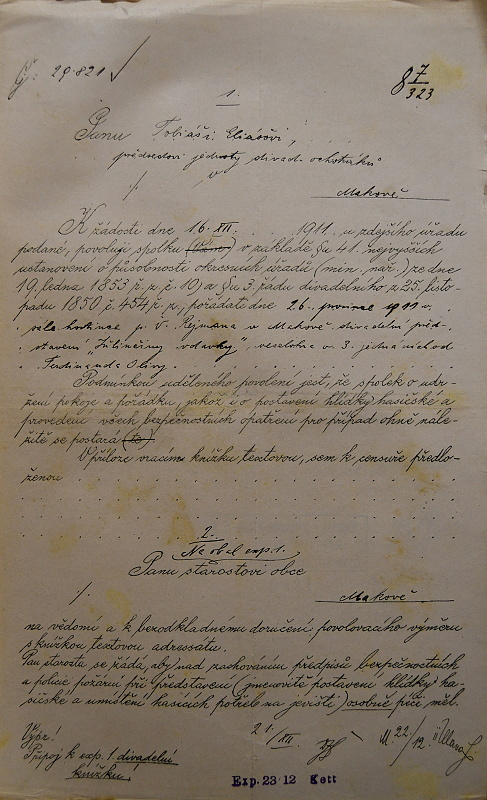 Čj: 29.821
8 7/323
1.
Panu Tobiáši Eliášovi,
předsedovi jednoty divad. ochotníků
v
Makově
K žádosti dne 16. XII. 1911 u zdejšího úřadu
podané, povoluji spolku v základě §u 41. nejvyšších
ustanovení o působnosti okresních úřadů (min. nař. ze dne
19. ledna 1853 ř. z. č. 10) a §u 3. řádu divadelního z 25. listo-
padu 1850 č. 454 ř. z., pořádati dne 26. prosince 1911 v
sále hostince p. V. Rejmana v Makově divadelní před-
stavení "Julinčiny vdavky", veselohra o 3. jednáních od
Ferdinanda Olivy.
Podmínkou uděleného povolení jest, že spolek o udr-
žení pokoje a pořádku, jakož i o postavení hlídky hasičské a
provedení všech bezpečnostních opatření pro případ ohně nále-
žitě se postará
V příloze vracím knížku textovou, sem k censuře předlo-
ženou
2.
Na obal exp. 1.
Panu starostovi obce
Makově
na vědomí a k bezodkladnému doručení povolovacího výměru
s knížkou textovou adressátu.
Pan starosta se žádá, aby nad zachováním předpisů bezpečnostních
a policie požární při představení (jmenovitě postavení hlídky ha-
sičské a umístění hasicích potřeb na jevišti) osobně péči měl.
Vypr!
Připoj k exp. 1. divadelní
knížku!
21/XII.
22/12.
Exp. 23 12 Kett